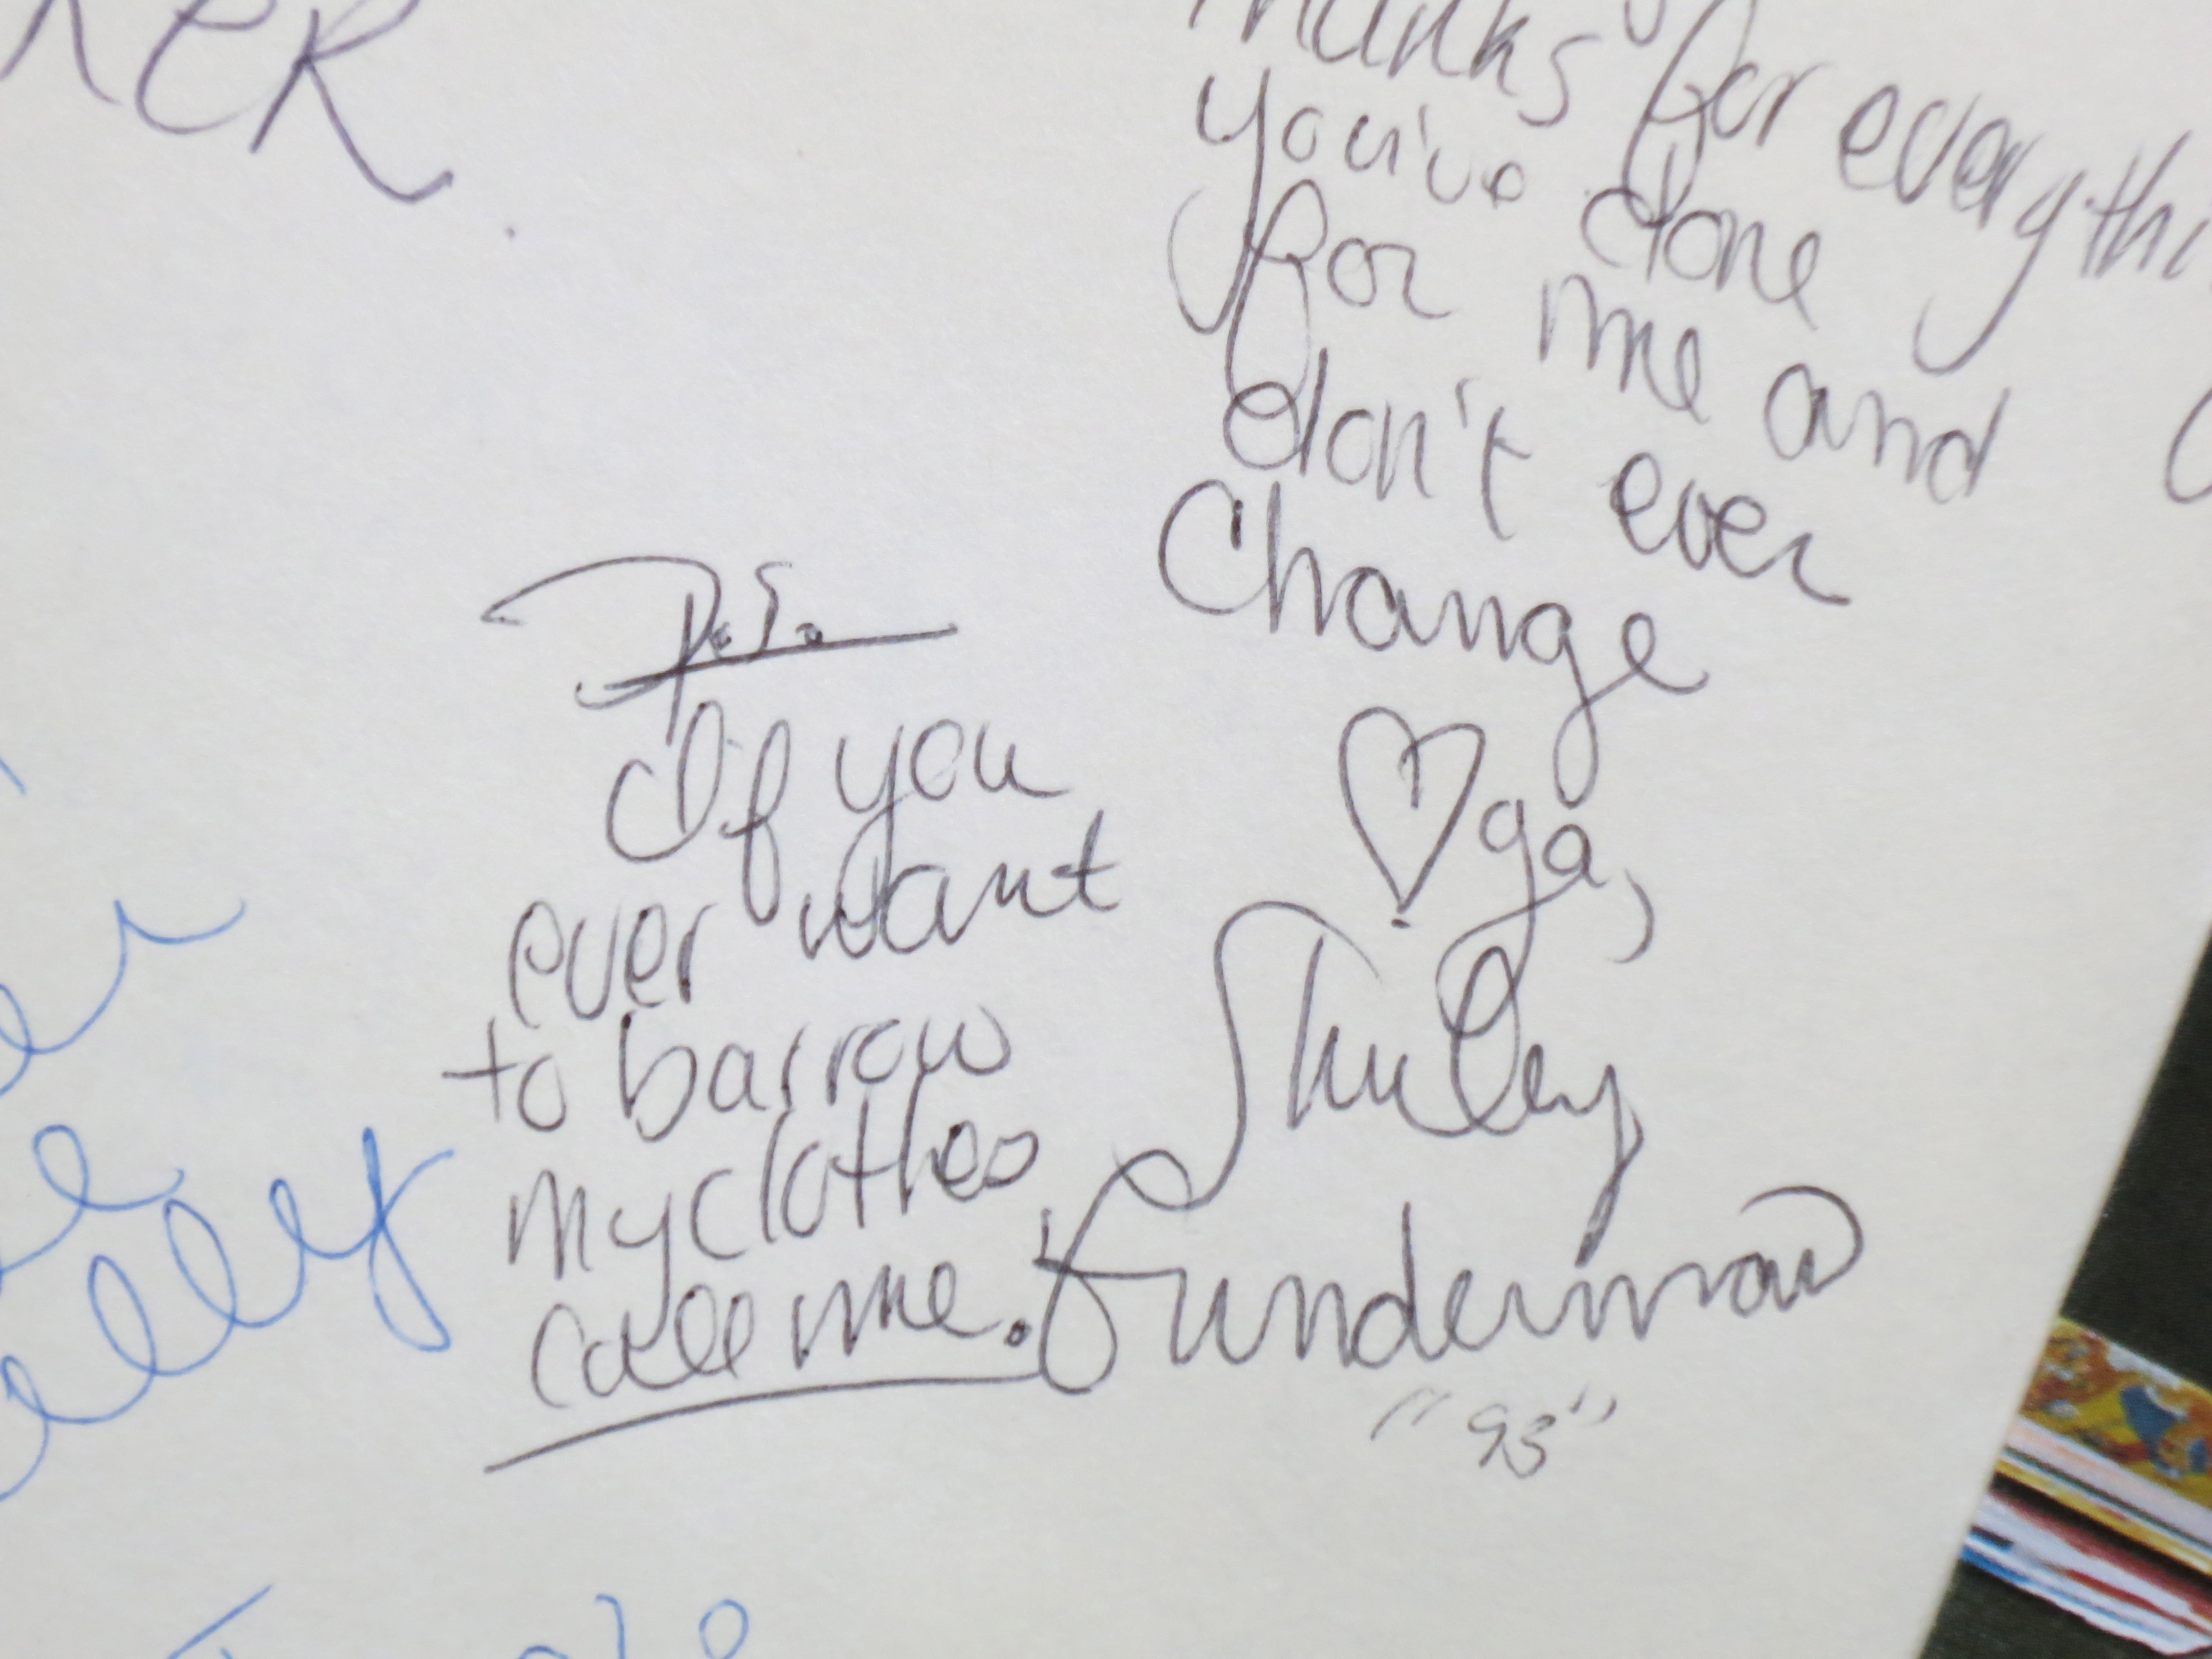 Thanks for everythi
you've done
for me and
don't ever
Change
♡ ya,
Shirley
Funderman
"93"
P.S.
If you
ever want
to barrow
my clothes
call me.